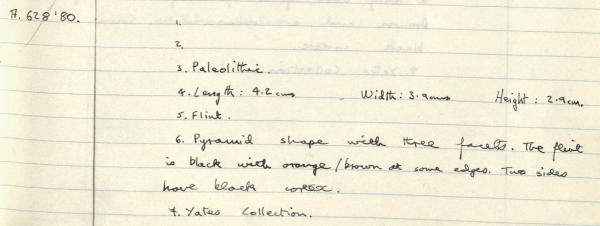 A. 628 '80.
1.
2.
3. Paleolithic.
4. Length: 4.2 cms Width: 3.9cms Height: 2.9cm.
5. Flint.
6. Pyramid shape with three facets. The flint
is black with orange/brown at some edges. Two sides
have black cortex.
7. Yates Collection.